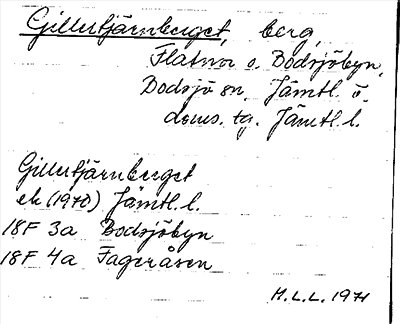 Gillertjärnberget, berg,
Flatnor o. Bodsjöbyn,
Bodsjö sn, Jämtl. ö.
doms. tg. Jämtl. l.
Gillertjärnberget
ek (1970) Jämtl. l.
18F 3a Bodsjöbyn
18F 4a Fageråsen
H.L.L. 1971